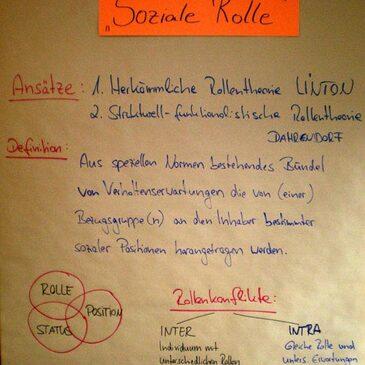 „Soziale Rolle"
Ansätze: 1. Herkömmliche Rollentheorie LINTON
2. Strukturell-funktionalistische Rollentheorie
DAHRENDORF
Definition:
Aus speziellen Normen bestehendes Bündel
von Verhaltenserwartungen die von (einer)
Bezugsgruppe(n) an den Inhaber bestimmter
sozialer Positionen herangetragen werden.
ROLLE
POSITION
STATUS
Rollenkonflikte:
INTER
Individuum mit
unterschiedlichen Rollen
INTRA
Gleiche Rolle und
unters. Erwartungen